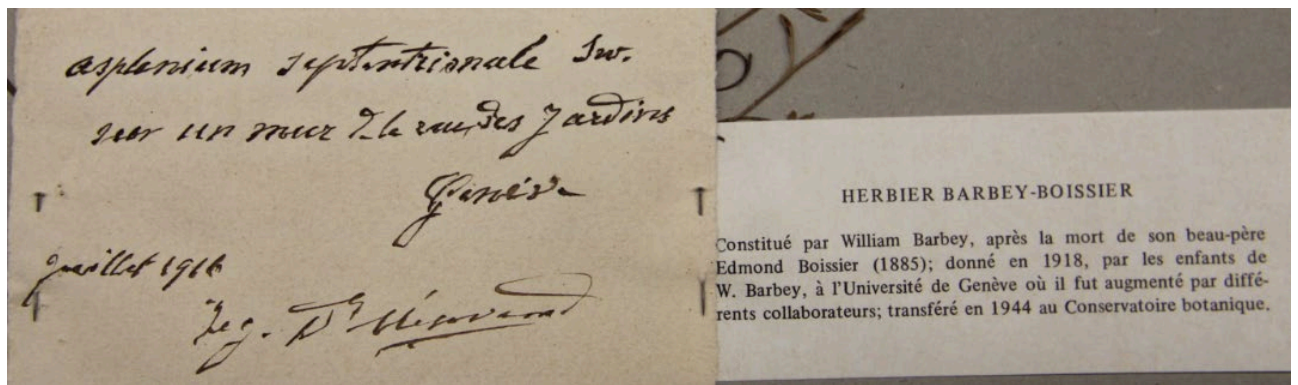 asplenium septentrionale Sw.
sur un mur de la rue des Jardins
Genève
juillet 1916
leg. Dr
HERBIER BARBEY-BOISSIER
Constitué par William Barbey, après la mort de son beau-père
Edmond Boissier (1885); donné en 1918, par les enfants de
W. Barbey, à l'Université de Genève où il fut augmenté par diffé-
rents collaborateurs; transféré en 1944 au Conservatoire botanique.